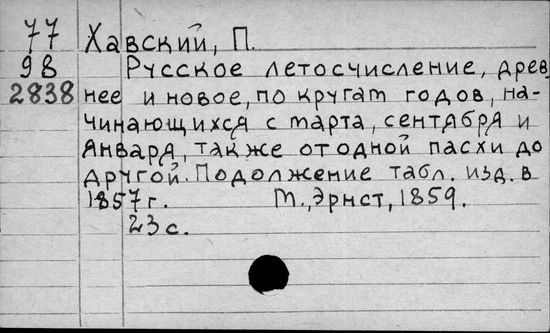 77 Хавский, П.
98 Русское летосчисление, древ
2838 нее и новое, по кругам годов, на-
чинающихся с марта, сентября и
января, также от одной пасхи до
другой. Подолжение табл. изд. в
1857 г. М., Эрнст, 1859.
23 с.